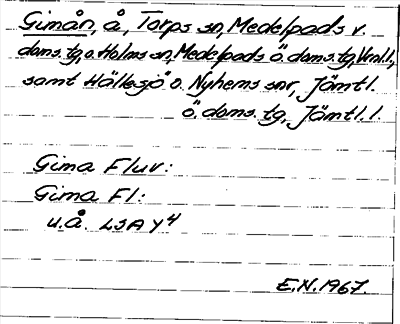 Gimån, å, Torps sn, Medelpads v.
doms.tg, o. Holms sn, Medelpads ö. doms.tg, Vrnl.l.,
samt Hällesjö o. Nyhems snr, Jämtl.
ö. doms. tg, Jämtl. l.
Gima Fluv:
Gima Fl:
u.å. LSA Y4
E.N. 1967.